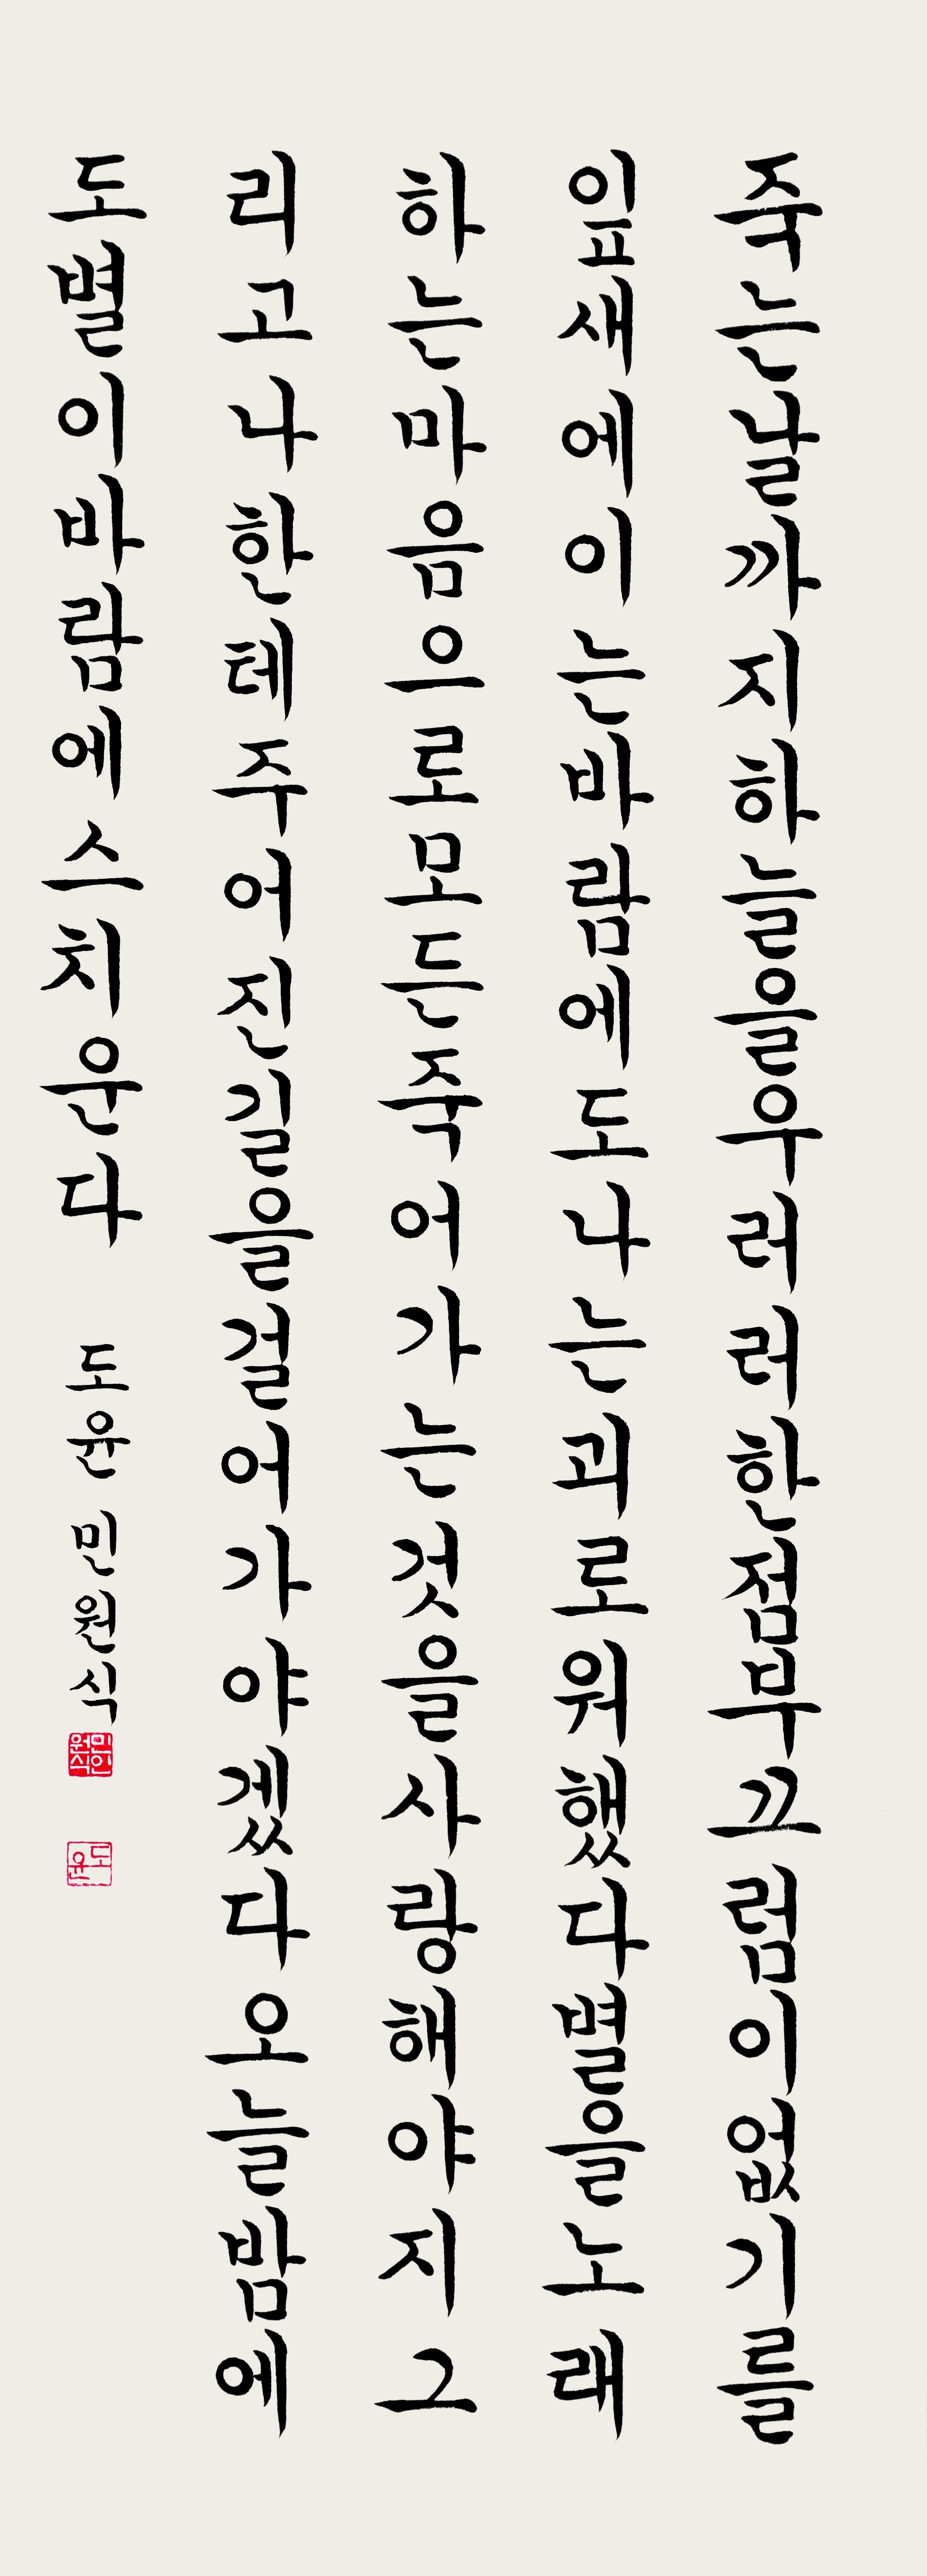 죽는날까지하늘을우러러한점부끄럼이없기를
잎새에이는바람에도나는괴로워했다별을노래
하는마음으로모든죽어가는것을사랑해야지그
리고나한테주어진길을걸어가야겠다오늘밤에
도별이바람에스치운다 도윤 민원식
민원식인
도윤